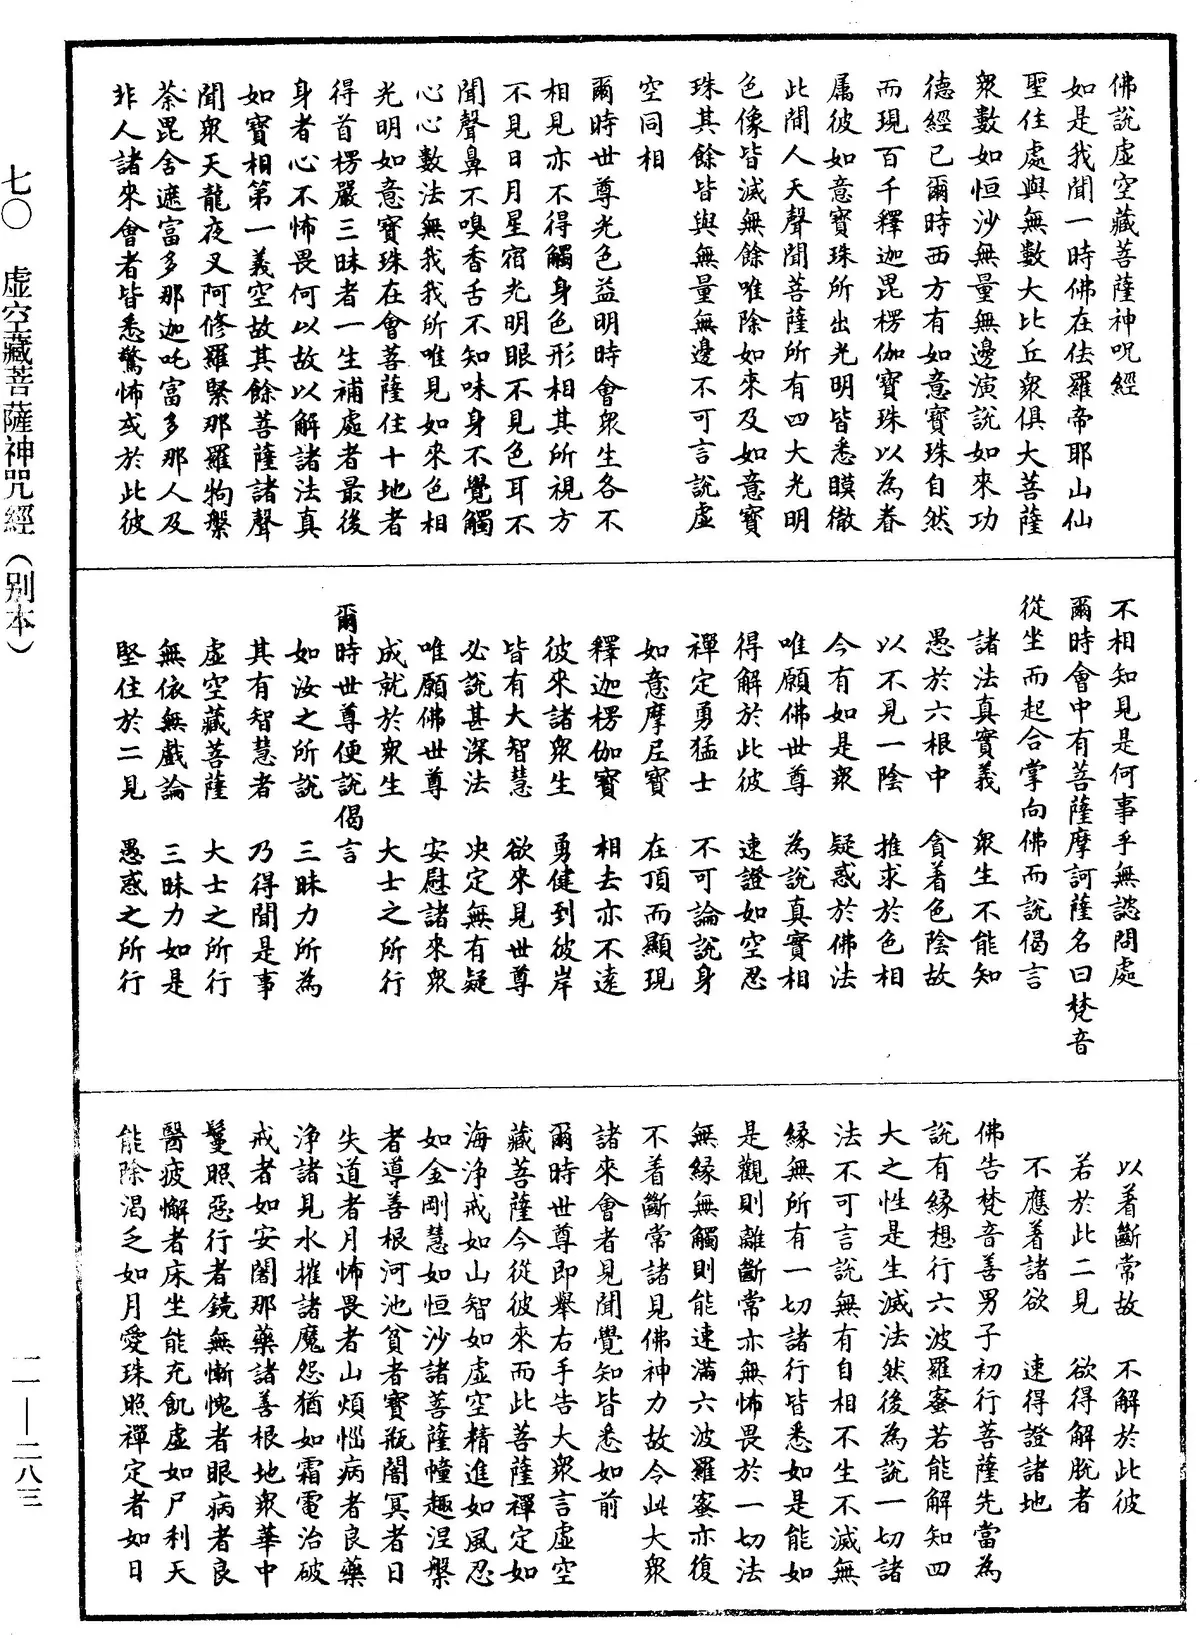 佛說虛空藏菩薩神呪經
如是我聞一時佛在佉羅帝耶山仙
聖住處與無數大比丘衆俱大菩薩
衆數如恒沙無量無邊演說如來功
德經已爾時西方有如意寶珠自然
而現百千釋迦毘楞伽寶珠以為眷
属彼如意寶珠所出光明皆悉瞙徹
此間人天聲聞菩薩所有四大光明
色像皆滅無餘唯除如來及如意寶
珠其餘皆與無量無邊不可言說虛
空同相
爾時世尊光色益明時會衆生各不
相見亦不得觸身色形相其所視方
不見日月星宿光明眼不見色耳不
聞聲鼻不嗅香舌不知味身不覺觸
心心數法無我我所唯見如來色相
光明如意寶珠在會菩薩住十地者
得首楞嚴三昧者一生補處者最後
身者心不怖畏何以故以解諸法真
如寶相第一義空故其餘菩薩諸聲
聞衆天龍夜叉阿修羅緊那羅鞫槃
荼毘舍遮富多那迦吒富多那人及
非人諸來會者皆悉驚怖或於此彼
不相知見是何事乎無諮問處
爾時會中有菩薩摩訶薩名曰梵音
從坐而起合掌向佛而說偈言
諸法真實義　衆生不能知
愚於六根中　貪着色陰故
以不見一陰　推求於色相
今有如是衆　疑惑於佛法
唯願佛世尊　為說真實相
得解於此彼　速證如空忍
禪定勇猛士　不可論說身
如意摩尼寶　在頂而顯現
釋迦楞伽寶　相去亦不遠
彼來諸衆生　勇健到彼岸
皆有大智慧　欲來見世尊
必說甚深法　决定無有疑
唯願佛世尊　安慰諸來衆
成就於衆生　大士之所行
爾時世尊便說偈言
如汝之所說　三昧力所為
其有智慧者　乃得聞是事
虛空藏菩薩　大士之所行
無依無戲論　三昧力如是
堅住於二見　愚惑之所行
以着斷常故　不解於此彼
若於此二見　欲得解脫者
不應着諸欲　速得證諸地
佛告梵音善男子初行菩薩先當為
說有緣想行六波羅蜜若能解知四
大之性是生滅法然後為說一切諸
法不可言說無有自相不生不滅無
緣無所有一切諸行皆悉如是能如
是觀則離斷常亦無怖畏於一切法
無緣無觸則能速滿六波羅蜜亦復
不着斷常諸見佛神力故令此大衆
諸來會者見聞覺知皆悉如前
爾時世尊即舉右手告大衆言虛空
藏菩薩今從彼來而此菩薩禪定如
海淨戒如山智如虛空精進如風忍
如金剛慧如恒沙諸菩薩幢趣涅槃
者導善根河池貧者寶瓶闇冥者日
失道者月怖畏者山煩惱病者良藥
淨諸見水摧諸魔怨猶如霜電治破
戒者如安闍那藥諸善根地衆華中
鬘照惡行者鏡無慚愧者眼病者良
醫疲懈者床坐能充飢虛如尸利天
能除渴乏如月愛珠照禪定者如日
七〇　虛空藏菩薩神咒經（別本）
一一—二八三